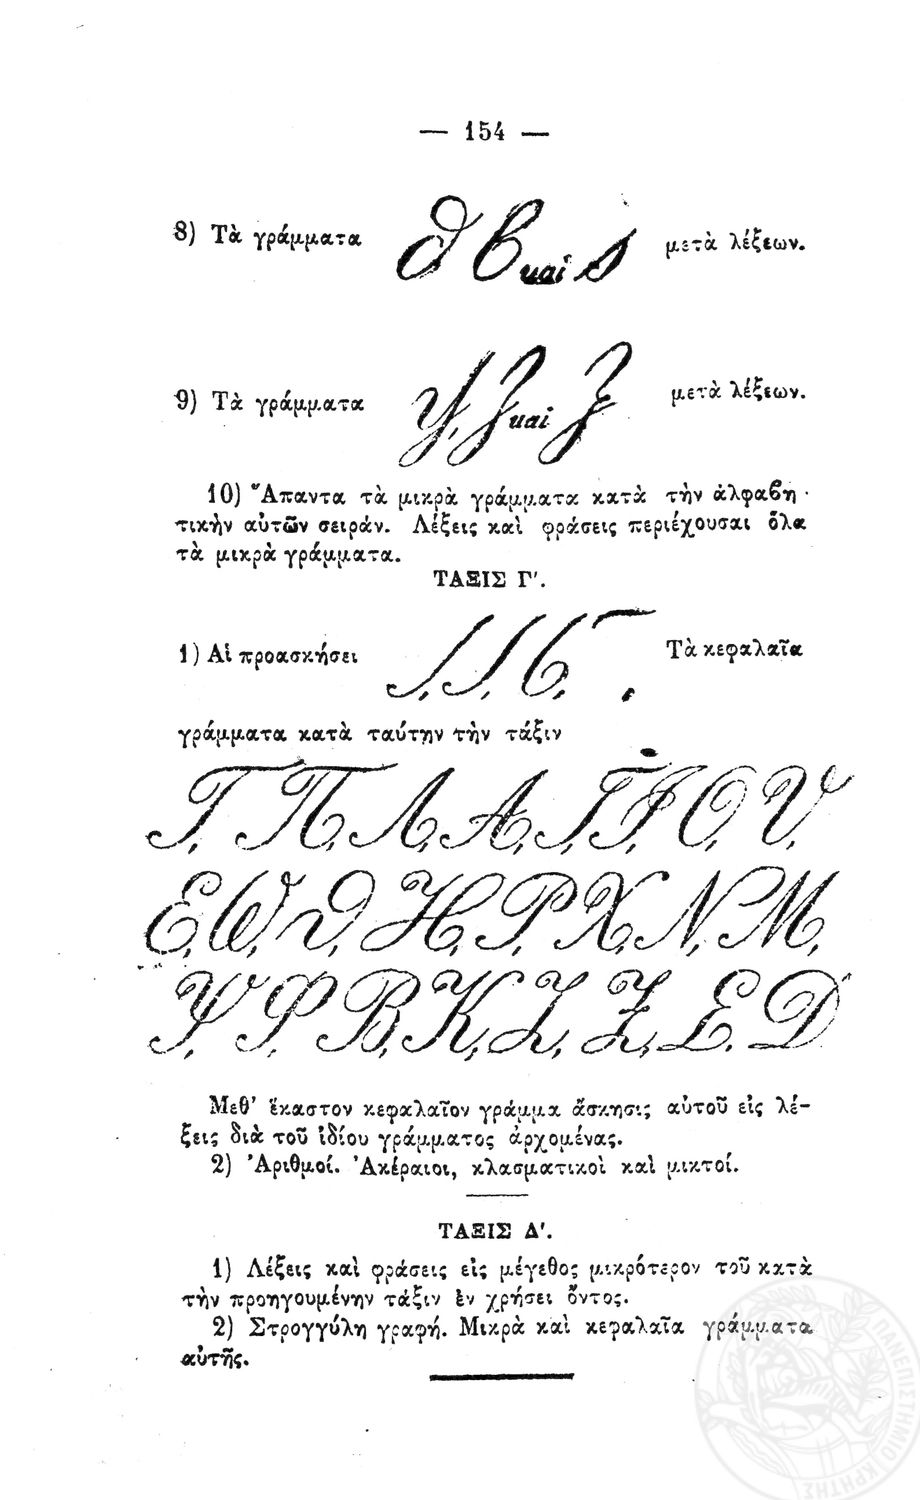 — 154 —
8) Τὰ γράμματα θ ϐ καὶ ς μετὰ λέξεων.
9) Τὰ γράμματα ψ, ζ καὶ ξ μετὰ λέξεων.
10) Ἅπαντα τὰ μικρὰ γράμματα κατὰ τὴν ἀλφαϐη-
τικὴν αὐτῶν σειράν. Λέξεις καὶ φράσεις περιέχουσαι ὅλα
τὰ μικρὰ γράμματα.
ΤΑΞΙΣ Γ'.
1) Αἱ προασκήσει Τὰ κεφαλαῖα
γράμματα κατὰ ταύτην τὴν τάξιν
Γ, Π, Λ, Α, Ι, Ϊ, Ο, Υ,
Ε, W, θ, Η, Ρ, Χ, Ν, Μ,
Ψ, Φ, Β, Κ, Ζ, Ξ, Σ. D
Μεθ' ἕκαστον κεφαλαῖον γράμμα ἄσκησις αὐτοῦ εἰς λέ-
ξεις διὰ τοῦ ἰδίου γράμματος ἀρχομένας.
2) Ἀριθμοί. Ἀκέραιοι, κλασματικοὶ καὶ μικτοί.
ΤΑΞΙΣ Δ'.
1) Λέξεις καὶ φράσεις εἰς μέγεθος μικρότερον τοῦ κατὰ
τὴν προηγουμένην τάξιν ἐν χρήσει ὄντος.
2) Στρογγύλη γραφή. Μικρὰ καὶ κεφαλαῖα γράμματα
αὐτῆς.
ΠΑΝΕΠΙΣΤΗΜΙΟ ΚΡΗΤΗΣ